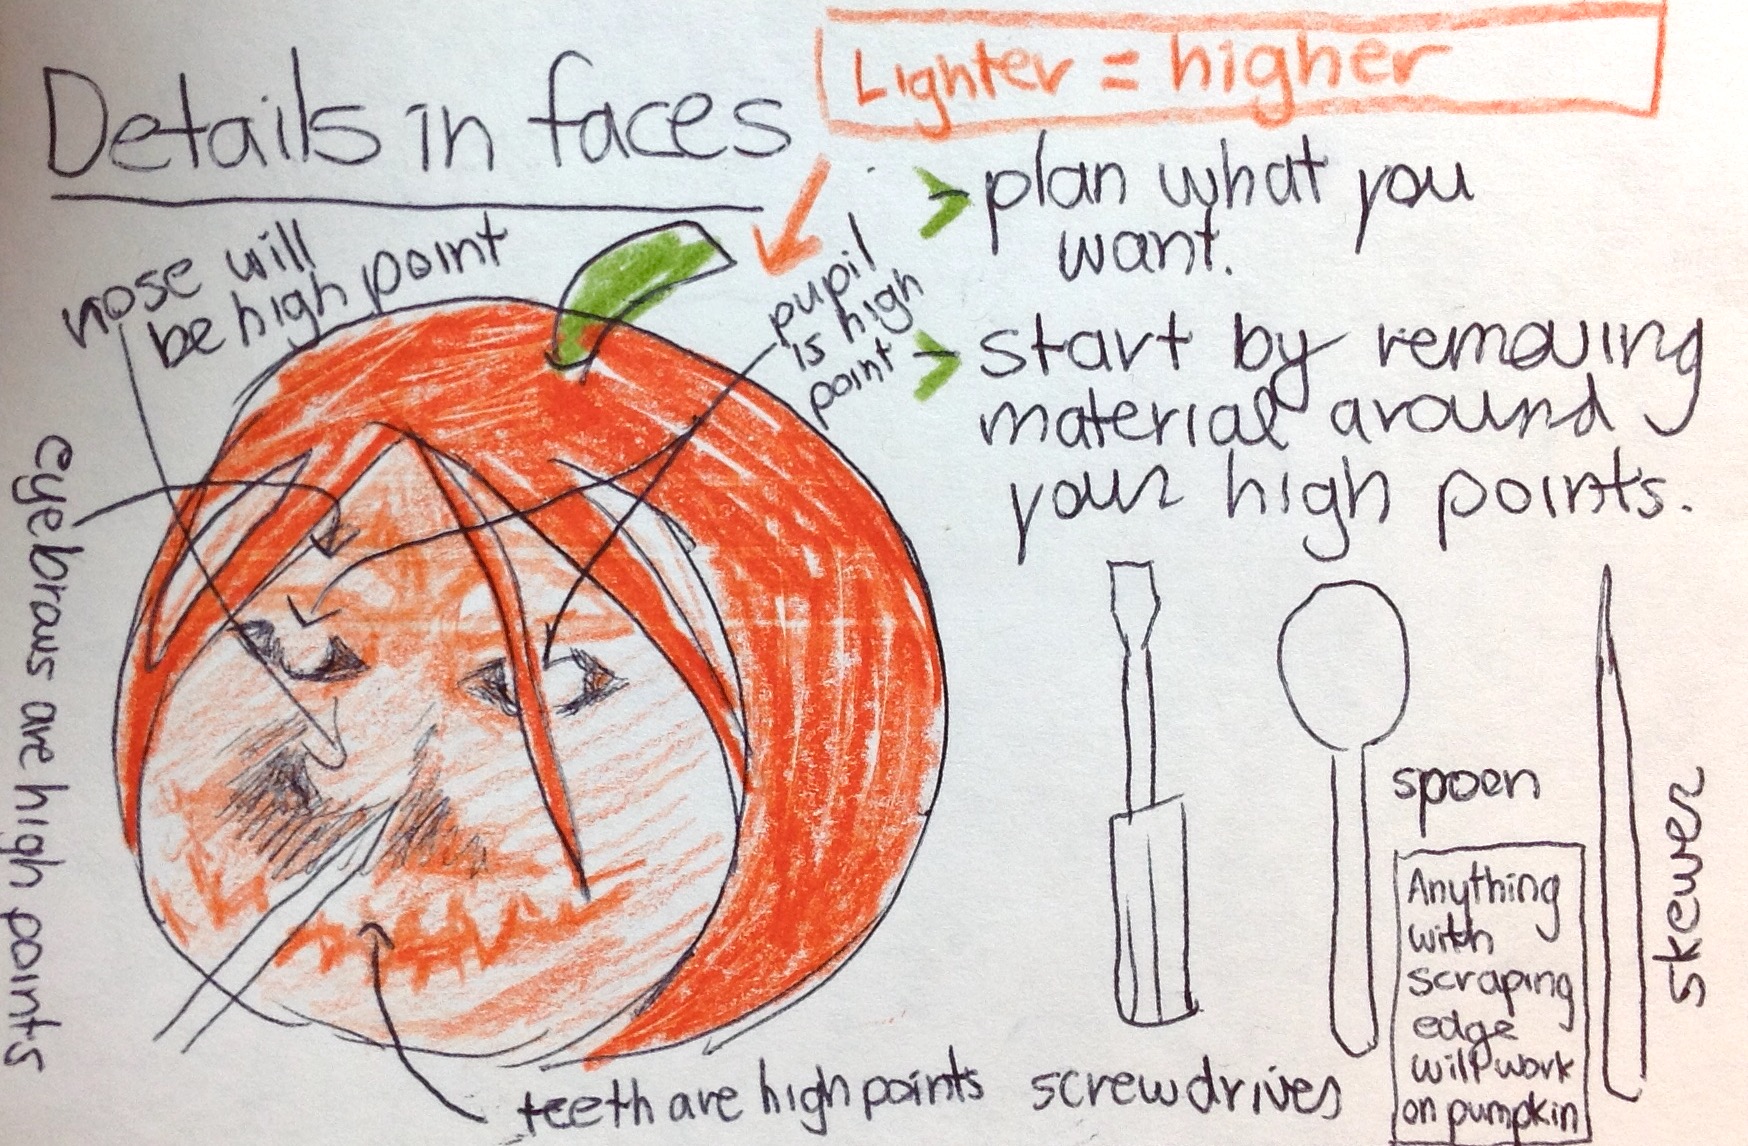 Details in faces
Lighter = higher
plan what you
want.
start by removing
material around
your high points.
nose will
be high point
pupil
is high
point
eyebrows are high points
teeth are high points
screwdrives
spoen
skewer
Anything
with
scraping
edge
will work
on pumpkin